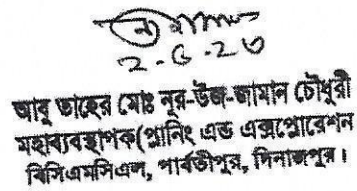 ২-৫-২৩
আবু তাহের মোঃ নূর-উজ-জামান চৌধুরী
মহাব্যবস্থাপক(প্লানিং এন্ড এক্সপ্লোরেশন
বিসিএমসিএল, পার্বতীপুর, দিনাজপুর।